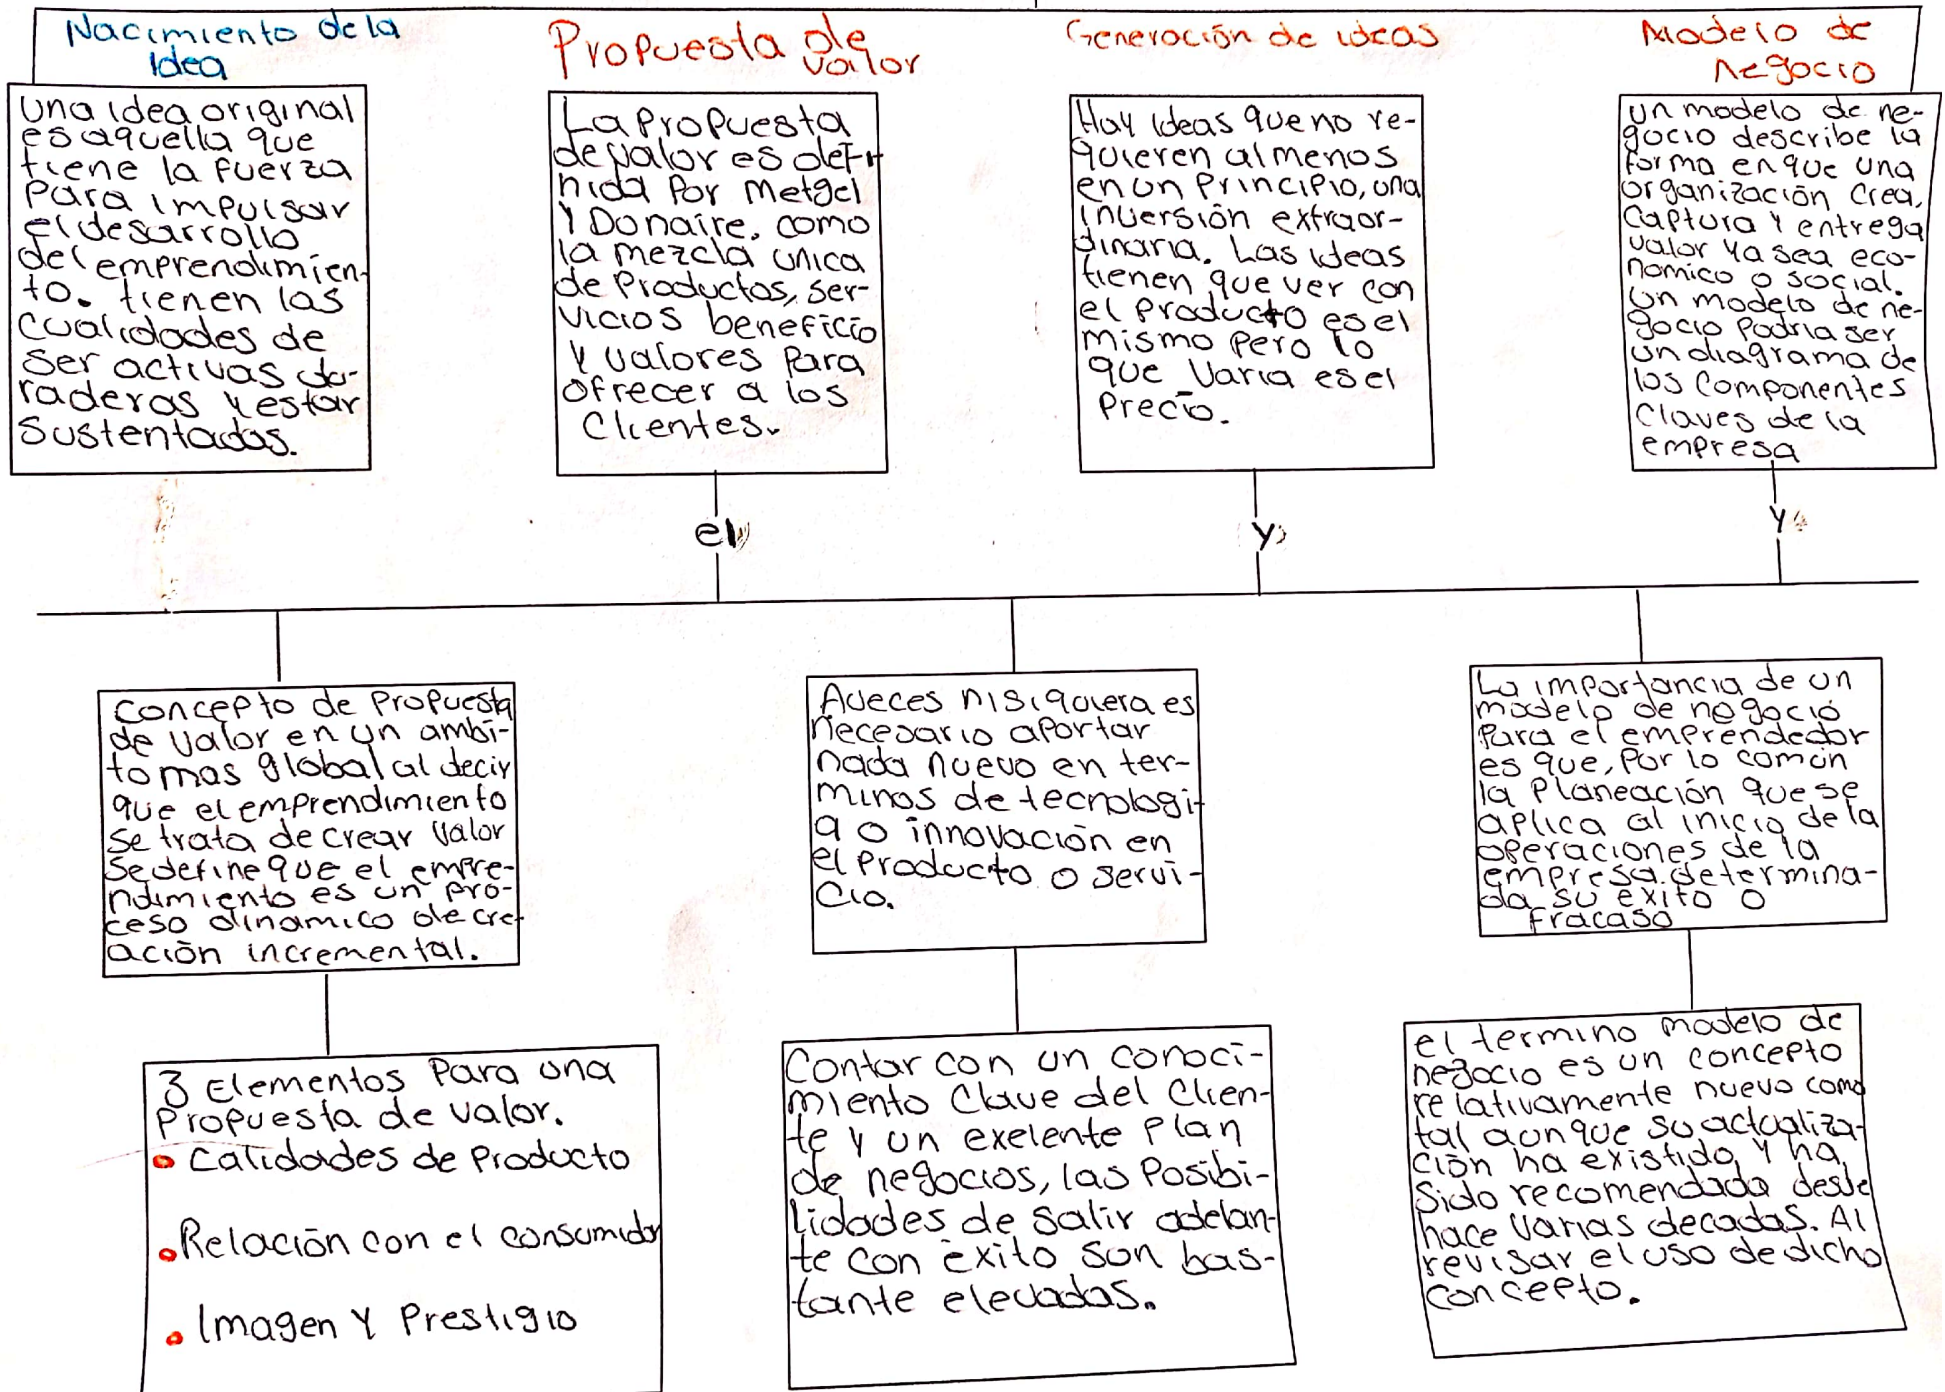 Nacimiento de la
Idea
Una idea original
es aquella que
tiene la fuerza
para impulsar
el desarrollo
del emprendimien-
to. tienen las
cualidades de
ser activas du-
raderas y estar
sustentadas.
Propuesta de
valor
La propuesta
de valor es defi-
nida por Metgel
y Donaire, como
la mezcla unica
de productos, ser-
vicios beneficio
y valores para
ofrecer a los
Clientes.
Generación de ideas
Hay ideas que no re-
quieren al menos
en un principio, una
inversión extraor-
dinaria. Las ideas
tienen que ver con
el producto es el
mismo pero lo
que varia es el
precio.
Modelo de
negocio
un modelo de ne-
gocio describe la
forma en que una
organización crea,
captura y entrega
valor ya sea eco-
nomico o social.
un modelo de ne-
gocio podria ser
un diagrama de
los componentes
claves de la
empresa
el
y
y
concepto de propuesta
de valor en un ambi-
to mas global al decir
que el emprendimiento
se trata de crear valor
se define que el empre-
ndimiento es un pro-
ceso dinamico de cre-
ación incremental.
Aveces nisiquiera es
necesario aportar
nada nuevo en ter-
minos de tecnologi-
a o innovación en
el producto o servi-
cio.
La importancia de un
modelo de negocio
para el emprendedor
es que, por lo común
la planeación que se
aplica al inicio de la
operaciones de la
empresa determina-
da su exito o
fracaso
3 Elementos para una
propuesta de valor.
• Calidades de producto
• Relación con el consumidor
• Imagen y Prestigio
Contar con un conoci-
miento clave del clien-
te y un exelente plan
de negocios, las posibi-
lidades de salir adelan-
te con éxito son bas-
tante elevadas.
el termino modelo de
negocio es un concepto
relativamente nuevo como
tal aunque su actualiza-
ción ha existido y ha
sido recomendada desde
hace varias decadas. Al
revisar el uso de dicho
concepto.